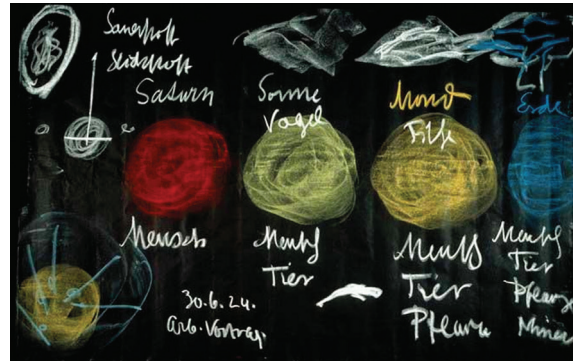 Sauerstoff
Stickstoff
Saturn
Sonne
Vogel
Mond
Erde
Mensch
Mensch
Tier
Mensch
Tier
Pflanze
Mensch
Tier
Pflanze
Miner
30.6.24.
Arb. Vortrag.